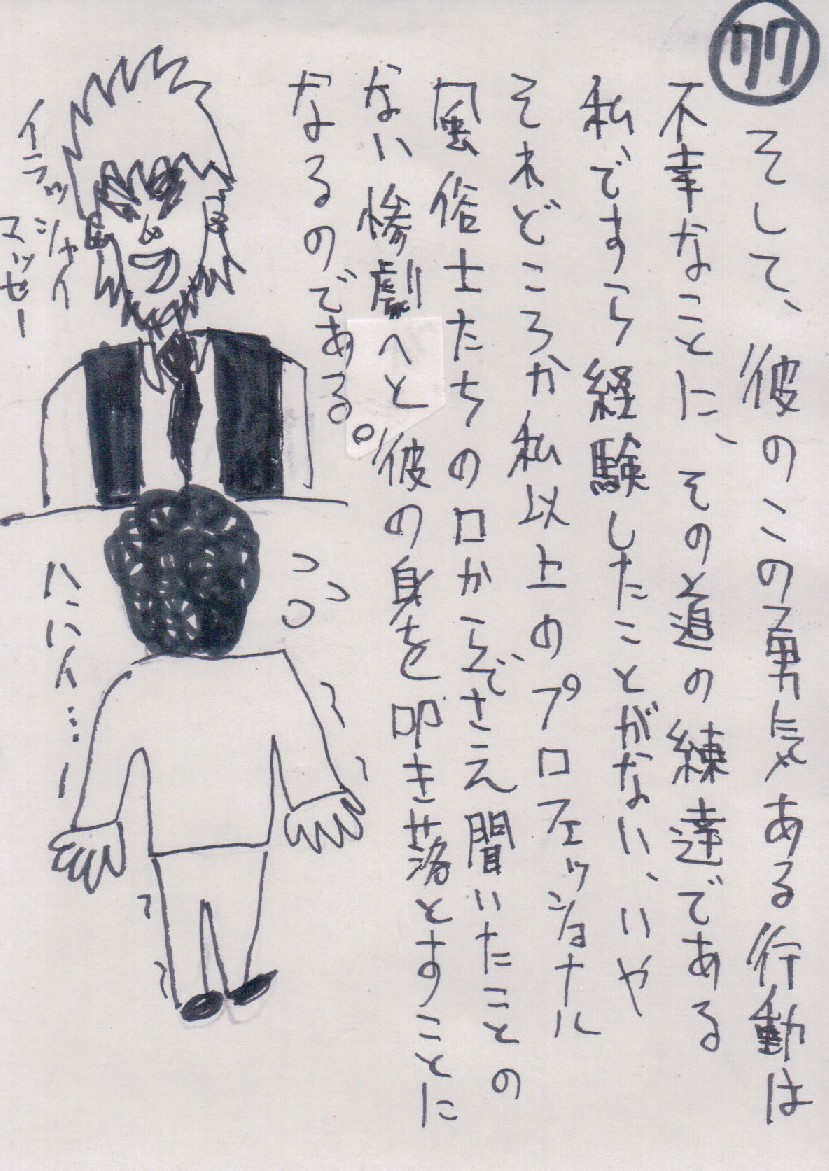 77
そして、彼のこの勇気ある行動は
不幸なことに、その道の練達である
私ですら経験したことがない、いや
それどころか私以上のプロフェッショナル
風俗士たちの口からでさえ聞いたことの
ない惨劇へと彼の身を叩き落とすことに
なるのである。
イラッシャイ
マッセー
ハハハイ…